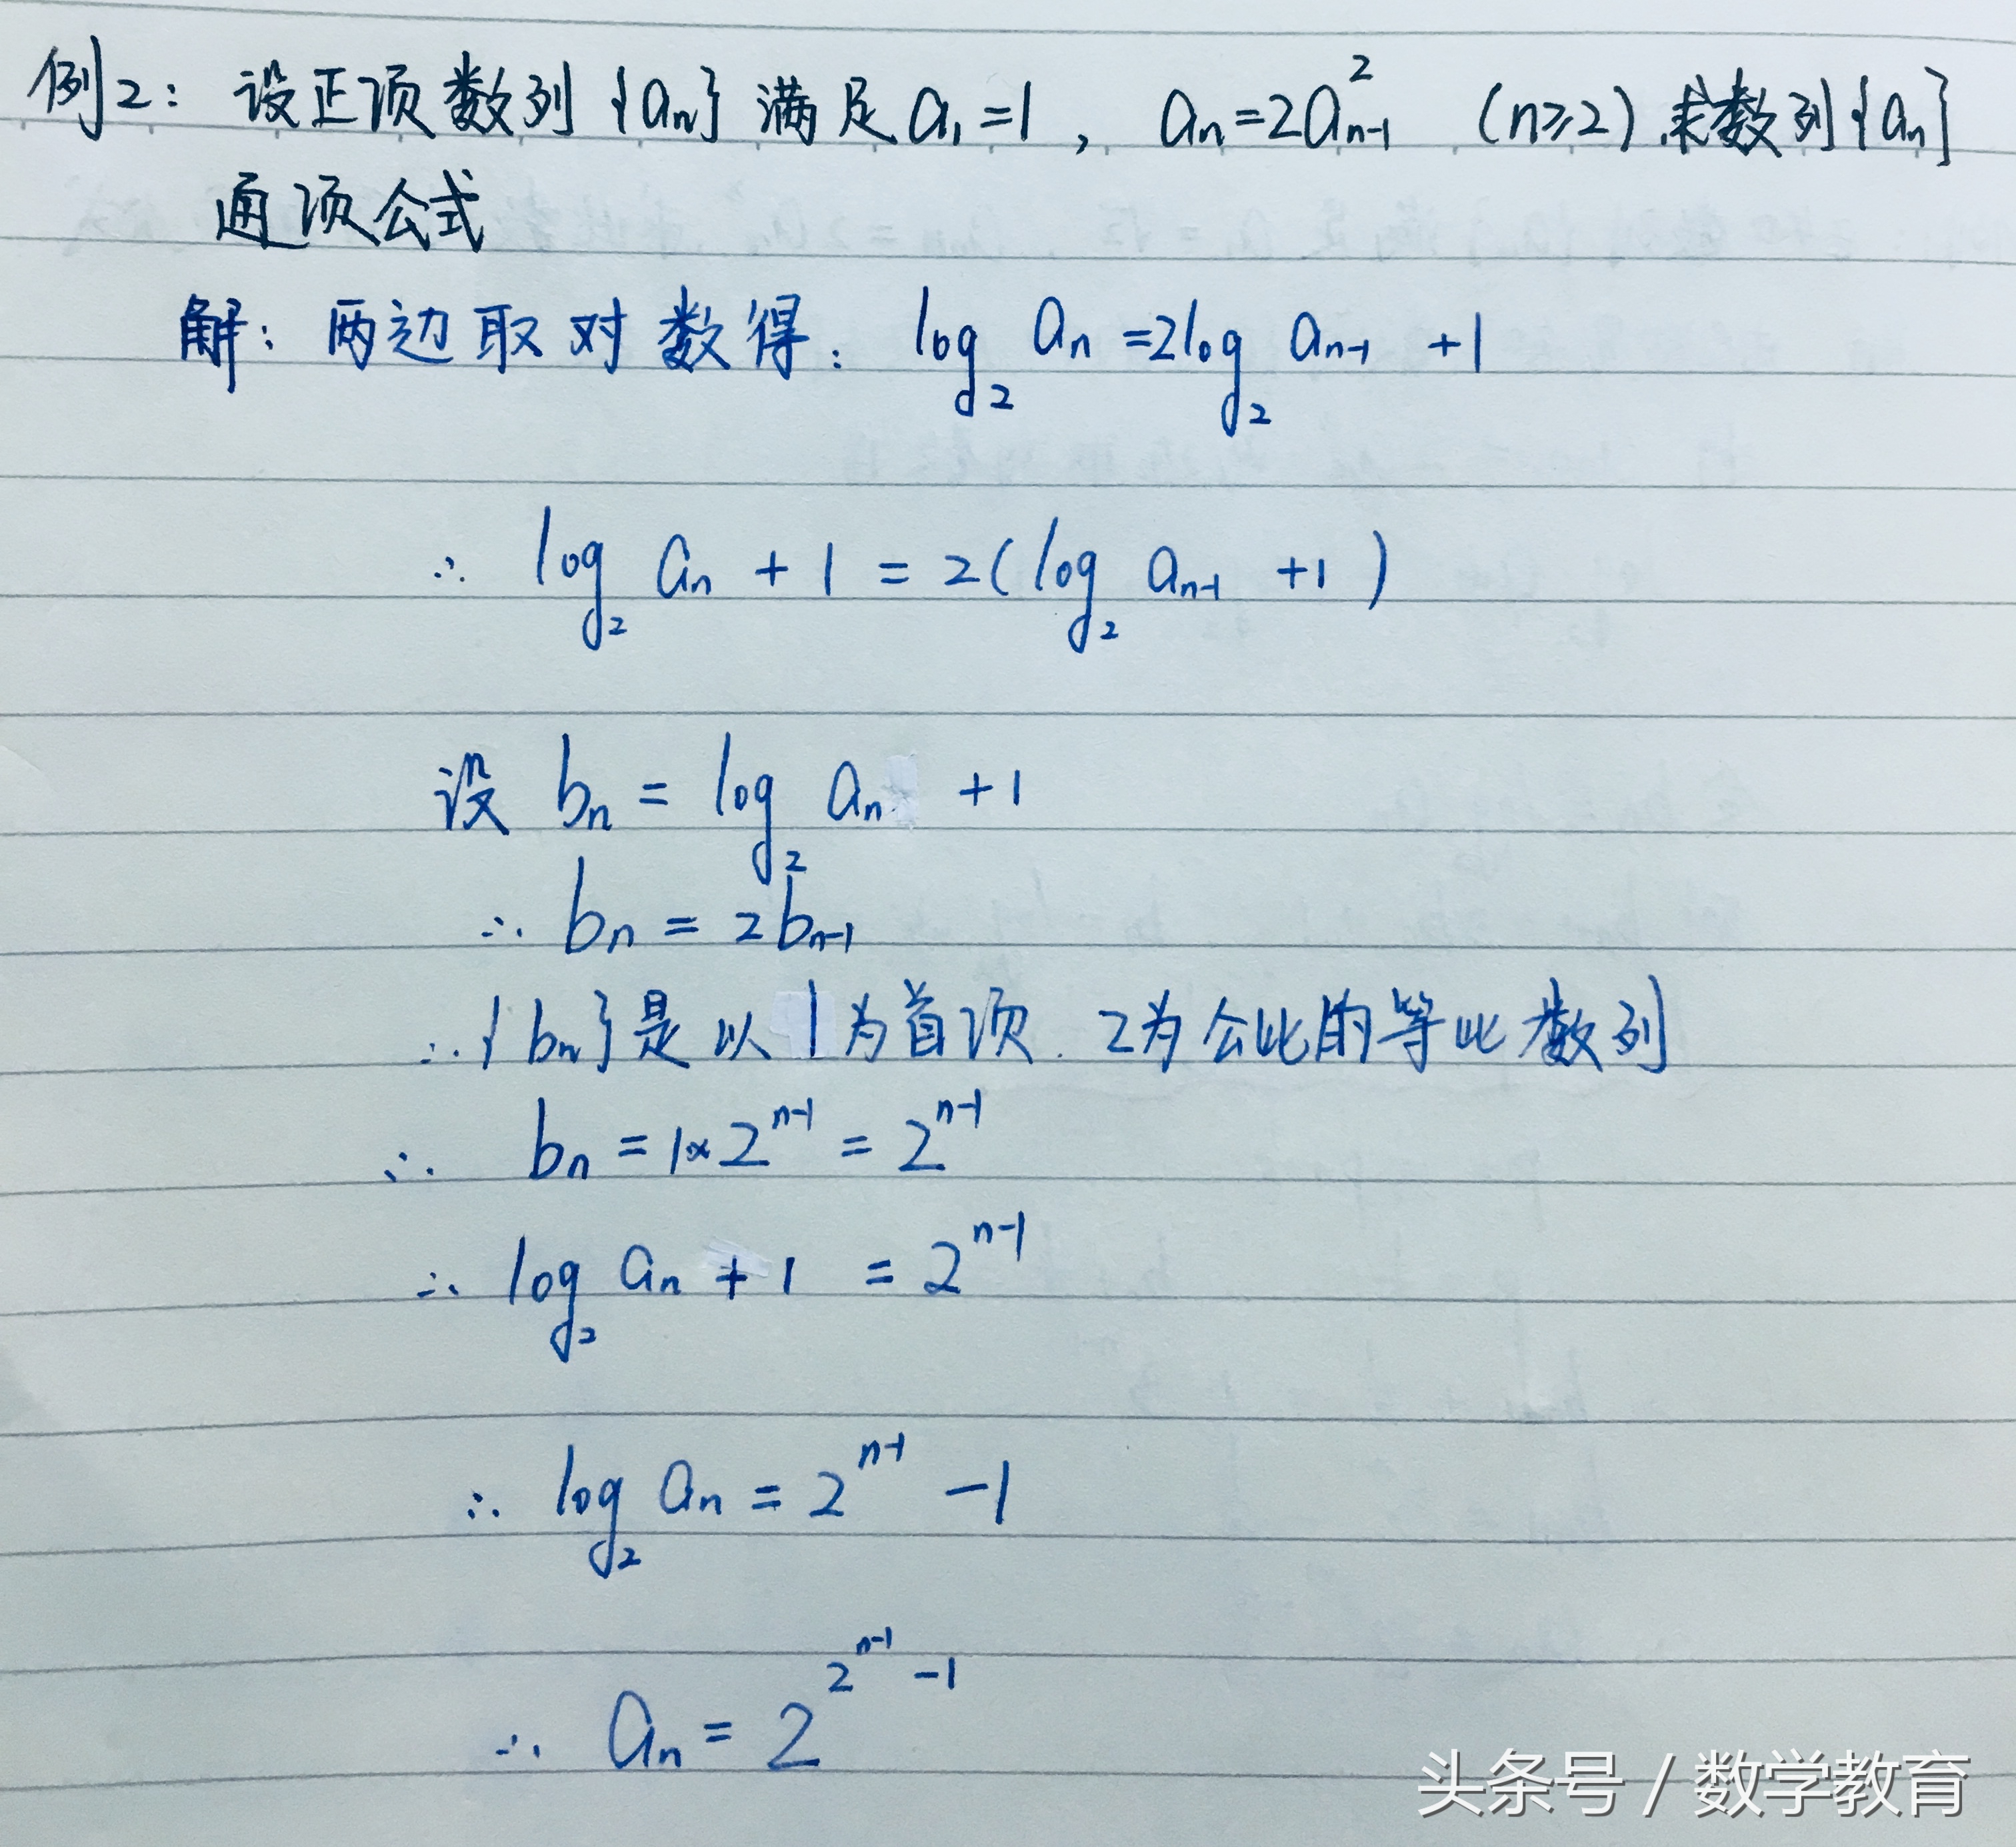 例2：设正项数列{aₙ}满足a₁=1，aₙ=2aₙ₋₁² (n≥2).求数列{aₙ}
通项公式
解：两边取对数得：log₂ aₙ=2log₂ aₙ₋₁ +1
∴ log₂ aₙ + 1 = 2(log₂ aₙ₋₁ +1)
设 bₙ = log₂ aₙ +1
∴ bₙ = 2bₙ₋₁
∴{bₙ}是以1为首项.2为公比的等比数列
∴ bₙ = 1×2ⁿ⁻¹ = 2ⁿ⁻¹
∴ log₂ aₙ + 1 = 2ⁿ⁻¹
∴ log₂ aₙ = 2ⁿ⁻¹ -1
∴ aₙ = 2^(2ⁿ⁻¹ -1)
头条号 / 数学教育